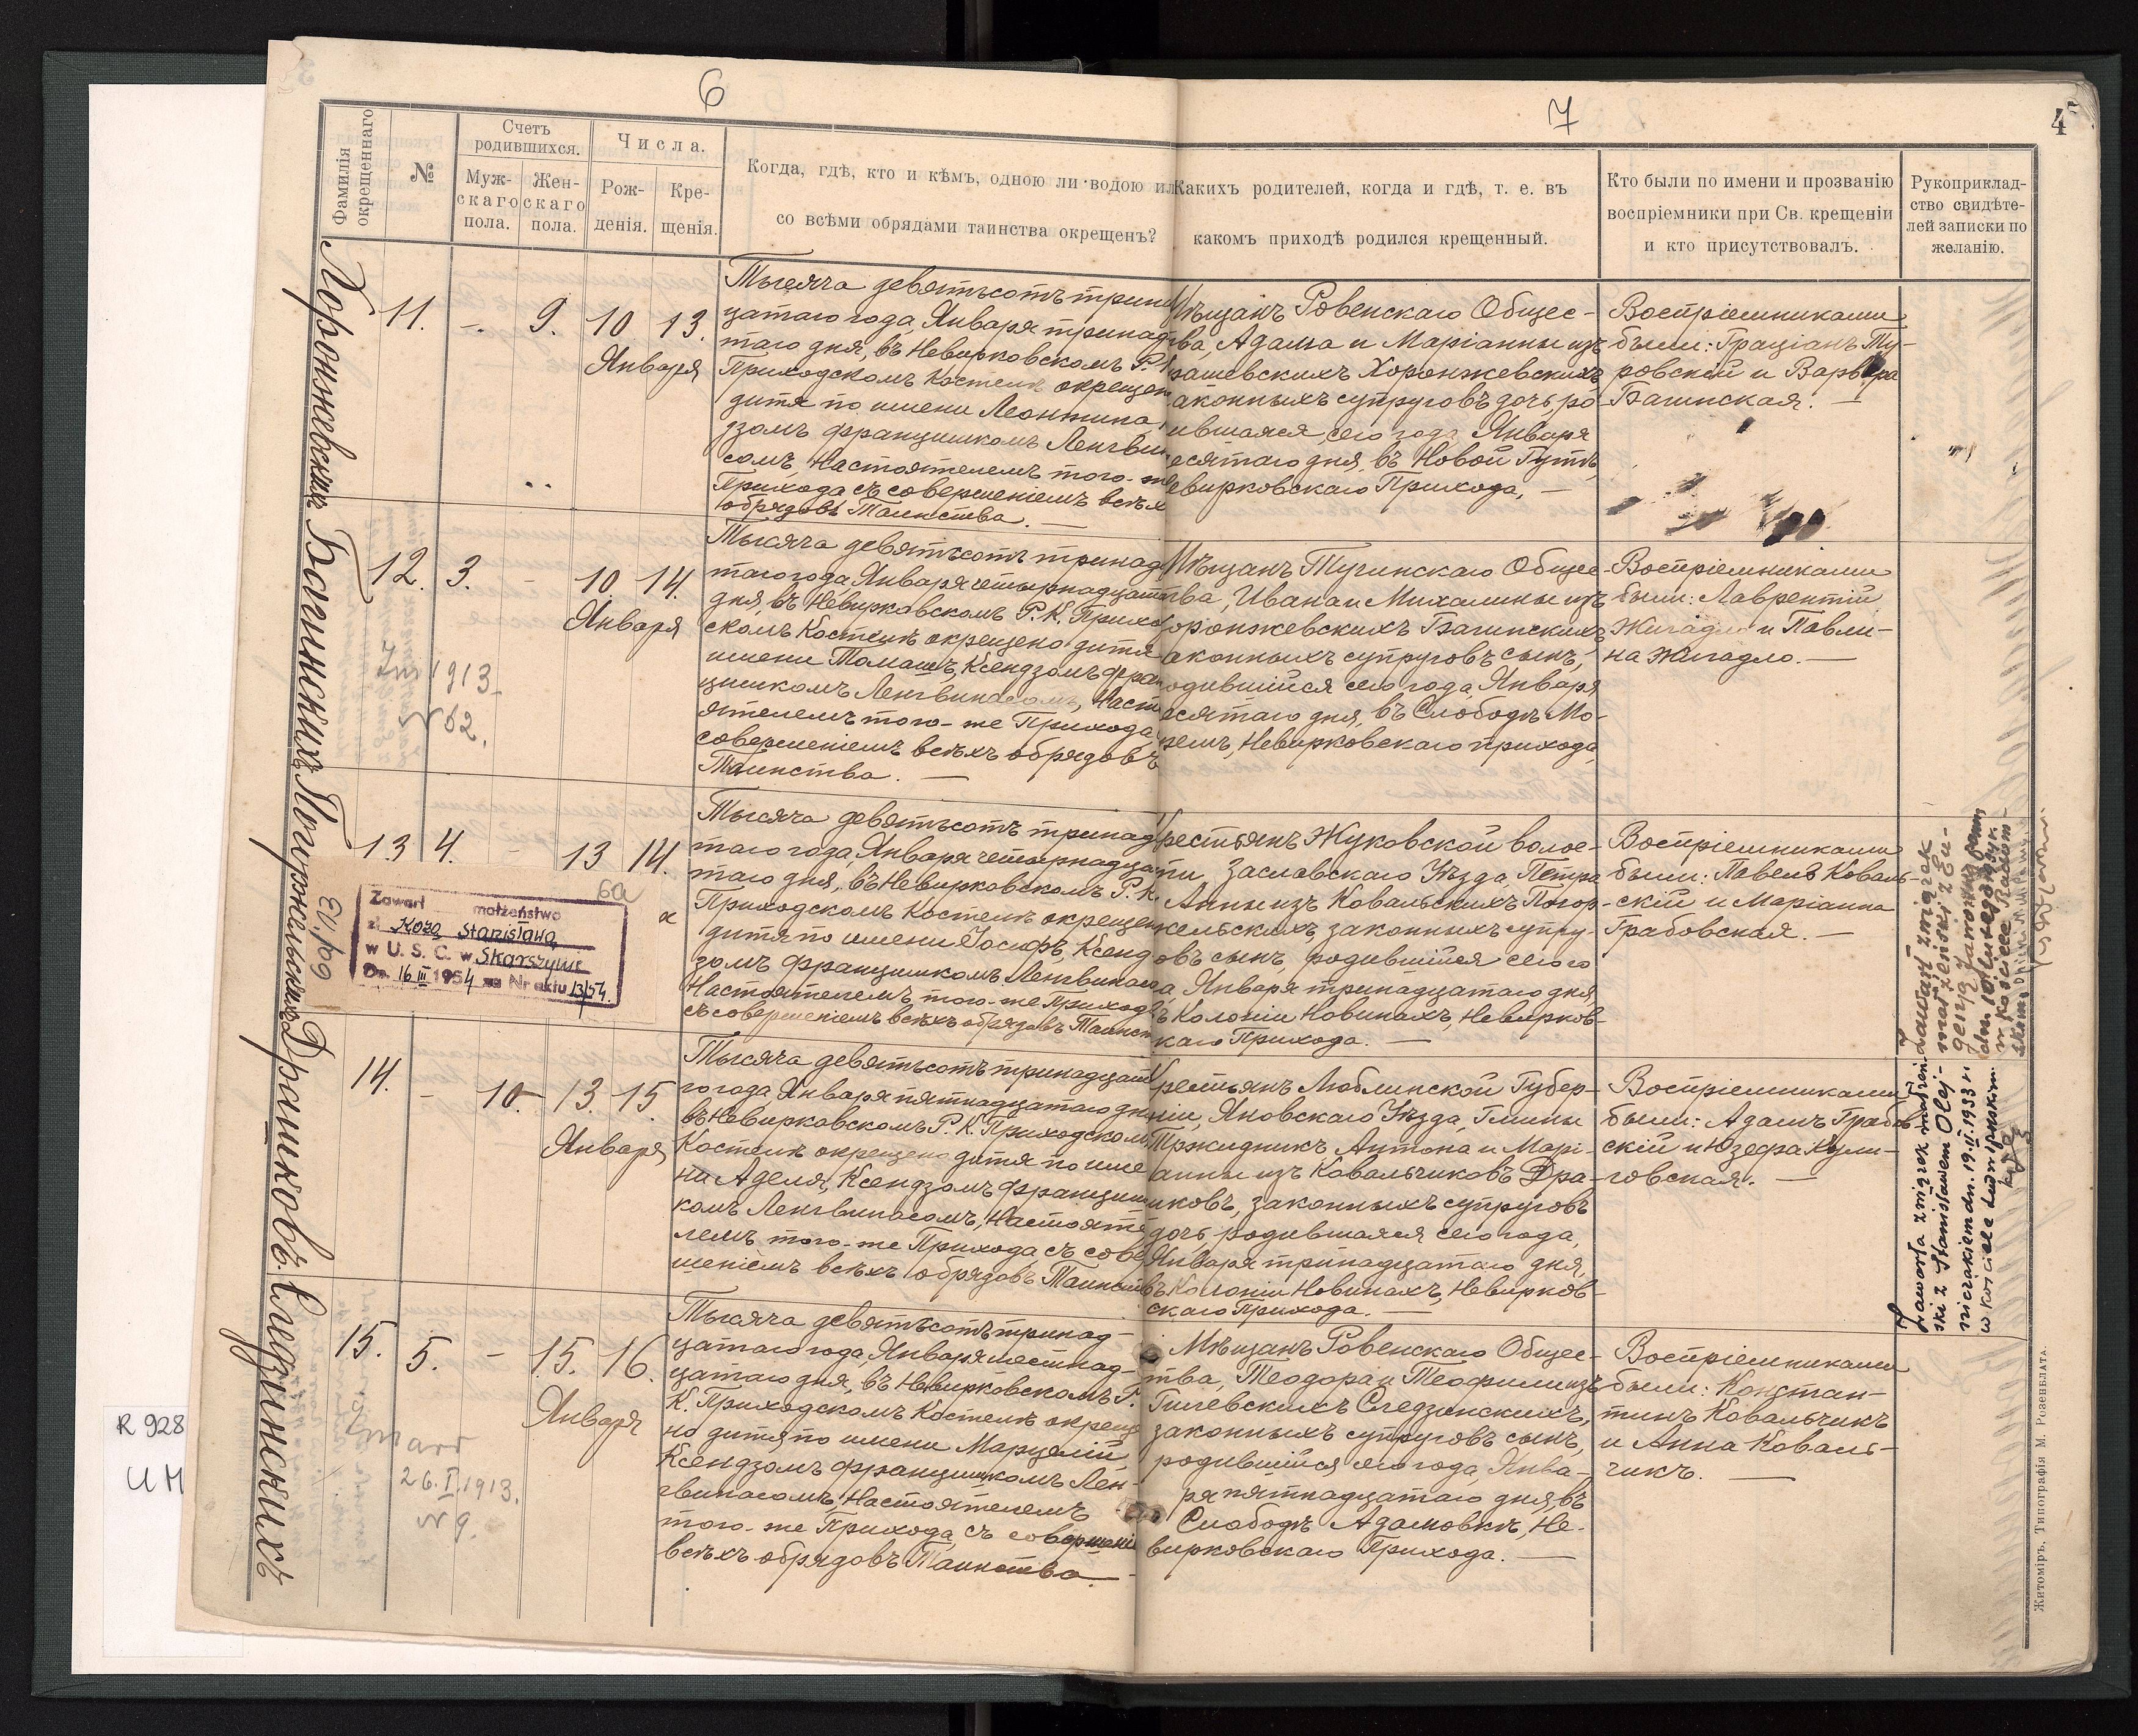 6
7
4
Фамилія
окрещеннаго
№
Счетъ
родившихся.
Муж-
скаго
пола.
Жен-
скаго
пола.
Числа.
Рож-
денія.
Кре-
щенія.
Когда, гдѣ, кто и кѣмъ, одною ли водою ил
со всѣми обрядами таинства окрещенъ?
Какихъ родителей, когда и гдѣ, т. е. въ
какомъ приходѣ родился крещенный.
Кто были по имени и прозванію
воспріемники при Св. крещеніи
и кто присутствовалъ.
Рукоприклад-
ство свидѣте-
лей записки по
желанію.
Хоронжевскихъ
11. -. 9. 10 13.
Января
Тысяча девятьсотъ трин
цатаго года, Января тринад
таго дня, въ Невирковскомъ Р.
Приходскомъ Костелѣ окрещен
дитя по имени Леонтина,
дзомъ Францишкомъ Ленгви
сомъ, Настоятелемъ того-же
Прихода, съ совершеніемъ всѣхъ
обрядовъ Таинства. —
Мѣщанъ Ровенскаго Общес-
ва, Адама и Маріанны изъ
рашевскихъ Хоронжевскихъ
аконныхъ супруговъ дочь, ро-
ившаяся сего года, Января
есятаго дня, въ Новой Гутѣ,
евирковскаго Прихода, —
Воспріемниками
были: Граціанъ Ту-
ровскій и Варвара
Багинская. —
Багинскихъ
12. 3. - 10 14.
Января
1913
N 62.
Тысяча девятьсотъ тринад
таго года, Января четырнадцат
дня, въ Невирковскомъ Р. К. Прихо
скомъ Костелѣ окрещено дитя
имени Томашъ, Ксендзомъ Фран
цишкомъ Ленгвинасомъ, Наст
ятелемъ того-же Прихода
совершеніемъ всѣхъ обрядовъ
Таинства. —
Мѣщанъ Тучинскаго Общес-
тва, Ивана и Михалины изъ
оронжевскихъ Багинскихъ
аконныхъ супруговъ сынъ,
одившійся сего года, Января
есятаго дня, въ Слободѣ Мо-
, Невирковскаго прихода,
Воспріемниками
были: Лаврентій
Жигадло и Павли-
на Жигадло. —
Погоржельскихъ
13 4. - 13 14.
6a
Zawarł małżeństwo
z Koza Stanisława
w U. S. C. w Skarszywie
Dn. 16 III 1954 za Nr aktu 13/54.
Тысяча девятьсотъ тринад
таго года, Января четырнадца
таго дня, въ Невирковскомъ Р. К.
Приходскомъ Костелѣ окрещен
дитя по имени Іосифъ, Ксенд
зомъ Францишкомъ Ленгвинасо
Настоятелемъ того-же Прихода
съ совершеніемъ всѣхъ обрядовъ Таинст
рестьянъ Жуковской волос-
ти, Заславскаго Уѣзда, Петра
Анны изъ Ковальскихъ Погор-
жельскихъ, законныхъ супру-
овъ сынъ, родившійся сего го
а, Января тринадцатаго дня,
ъ Колоніи Новинахъ, Невирков-
каго Прихода. —
Воспріемниками
были: Павелъ Коваль-
скій и Маріанна
Грабовская. —
Драшковъ.
14. - 10 13. 15.
Января
Тысяча девятьсотъ тринадцат
го года, Января пятнадцатаго дн
въ Невирковскомъ Р. К. Приходском
Костелѣ окрещено дитя по име
ни Аделя, Ксендзомъ Францишк
комъ Ленгвинасомъ, Настояте
лемъ того-же Прихода съ сове
шеніемъ всѣхъ обрядовъ Таинств
рестьянъ Люблинской Губер-
ніи, Яновскаго Уѣзда, Гмины
Тржидникъ, Антона и Марі-
анны изъ Ковальчиковъ Дра-
шковъ, законныхъ супруговъ
дочь родившаяся сего года,
Января тринадцатаго дня,
въ Колоніи Новинахъ, Невирков-
скаго Прихода. —
Воспріемниками
были: Адамъ Грабов-
скій и Юзефа Кули-
говская. —
zawarł związek
małżeński z Eu-
genją
dn. 10 lutego
w kościele
Zawarła związek małżeń-
ski z Stanisławem Olej-
niczakiem dn. 19.II.1933 r.
w kościele Ludwipolskim.
Следзинскихъ
15. 5. - 15. 16.
Января
Zmarł
26.I.1913.
N 9.
Тысяча девятьсотъ тринад-
цатаго года, Января шестнад-
цатаго дня, въ Невирковскомъ Р.
К. Приходскомъ Костелѣ окреще
но дитя по имени Марцелій,
Ксендзомъ Францишкомъ Лен-
гвинасомъ, Настоятелемъ
того-же Прихода, съ совершені
всѣхъ обрядовъ Таинства. —
Мѣщанъ Ровенскаго Общес-
тва, Теодора и Теофили изъ
Гилевскихъ Следзинскихъ,
законныхъ супруговъ сынъ,
родившійся сего года, Янва-
ря пятнадцатаго дня, въ
Слободѣ Адамовкѣ, Не-
вирковскаго Прихода. —
Воспріемниками
были: Констан-
тинъ Ковальчикъ
и Анна Коваль-
чикъ. —
Житоміръ, Типографія М. Розенблата.
R 928